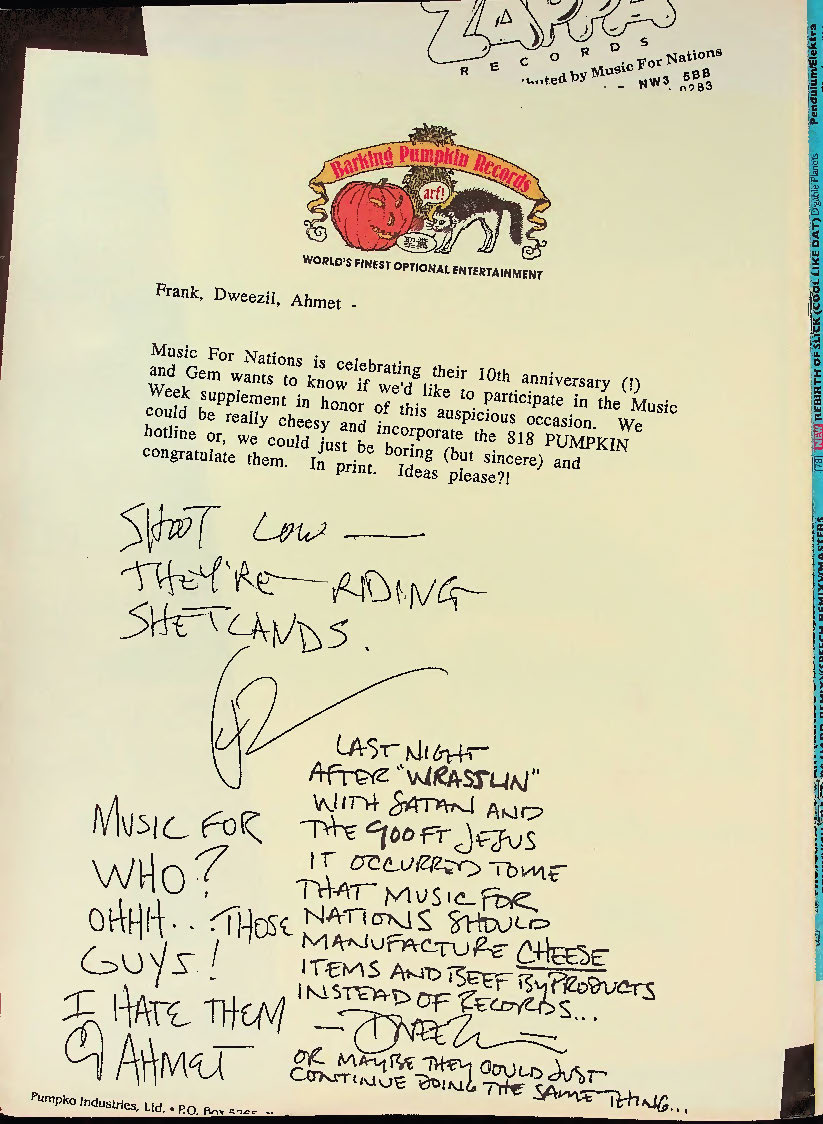 ZAPPA
RECORDS
by Music For Nations
NW3 5BB
0283
Barking Pumpkin Records
arf!
聖業
WORLD'S FINEST OPTIONAL ENTERTAINMENT
Frank, Dweezil, Ahmet -
Music For Nations is celebrating their 10th anniversary (!)
and Gem wants to know if we'd like to participate in the Music
Week supplement in honor of this auspicious occasion. We
could be really cheesy and incorporate the 818 PUMPKIN
hotline or, we could just be boring (but sincere) and
congratulate them. In print. Ideas please?!
SHOOT LOW —
THEY'RE RIDING
SHETLANDS.
FZ
LAST NIGHT
AFTER "WRASSLIN"
WITH SATAN AND
THE 900 FT JESUS
IT OCCURRED TO ME
THAT MUSIC FOR
NATIONS SHOULD
MANUFACTURE CHEESE
ITEMS AND BEEF BYPRODUCTS
INSTEAD OF RECORDS...
— DWEEZIL —
OR MAYBE THEY COULD JUST
CONTINUE DOING THE SAME THING...
MUSIC FOR
WHO?
OHHH...THOSE
GUYS!
I HATE THEM
AHMET
Pumpko Industries, Ltd. • P.O. Box
Pendulum/Elektra
REBIRTH OF SLICK (COOL LIKE DAT) Digable Planets
NEW